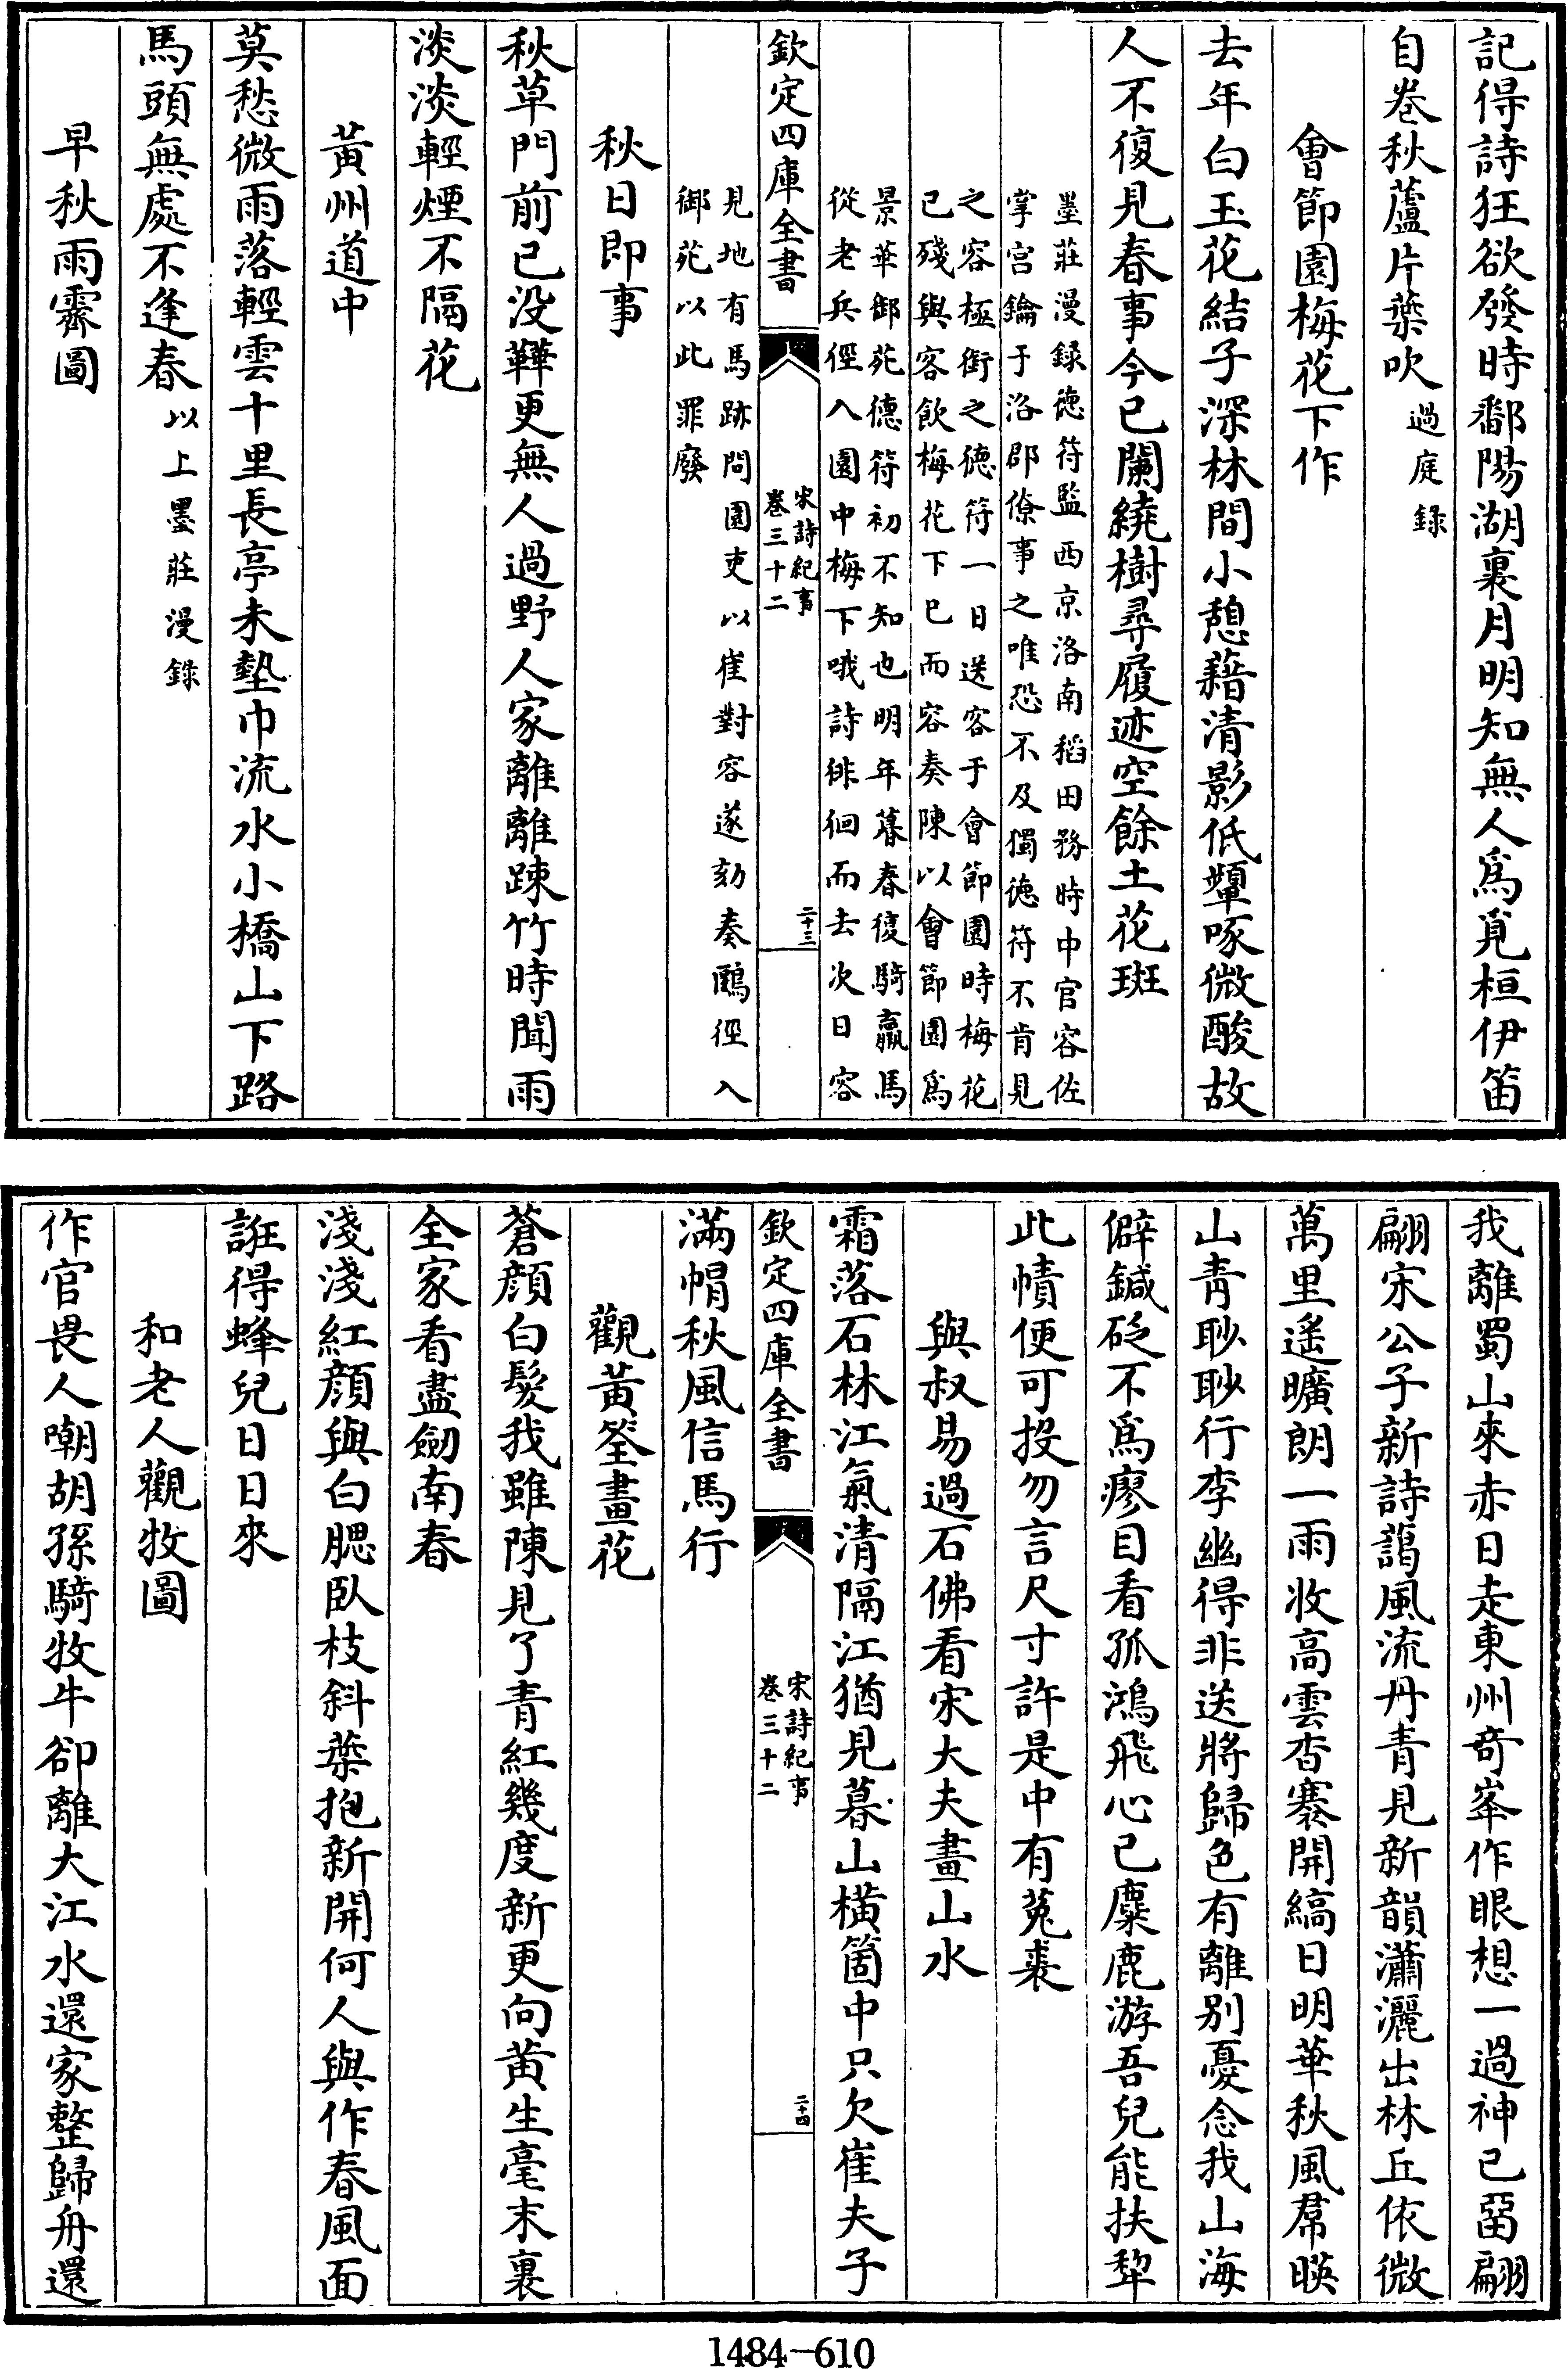 記得詩狂欲發時鄱陽湖裏月明知無人爲覓桓伊笛
自卷秋蘆片葉吹過庭録
會節園梅花下作
去年白玉花結子深林間小憩藉清影低顰啄微酸故
人不復見春事今已闌繞樹尋履迹空餘土花斑
墨莊漫録徳符監西京洛南稻田務時中官容佐
掌宫鑰于洛郡僚事之唯恐不及獨徳符不肯見
之容極銜之徳符一日送客于會節園時梅花
已殘與客飲梅花下已而容奏陳以會節園爲
景華御苑德符初不知也明年暮春復騎羸馬
從老兵徑入園中梅下哦詩徘徊而去次日容
欽定四庫全書
宋詩紀事
卷三十二
二十三
見地有馬跡問園吏以崔對容遂劾奏鷗徑入
御苑以此罪廢
秋日即事
秋草門前已没鞾更無人過野人家離離踈竹時聞雨
淡淡輕煙不隔花
黃州道中
莫愁微雨落輕雲十里長亭未墊巾流水小橋山下路
馬頭無處不逢春以上墨莊漫録
早秋雨霽圖
我離蜀山來赤日走東州奇峯作眼想一過神已畱翩
翩宋公子新詩藹風流丹青見新韻瀟灑出林丘依微
萬里遙曠朗一雨收高雲杳褰開縞日明華秋風帬暎
山靑眇眇行李幽得非送將歸色有離别憂念我山海
僻鍼砭不爲瘳目看孤鴻飛心已麋鹿游吾兒能扶犂
此幘便可投勿言尺寸許是中有菟裘
與叔易過石佛看宋大夫畫山水
霜落石林江氣清隔江猶見暮山橫箇中只欠崔夫子
欽定四庫全書
宋詩紀事
卷三十二
二十四
滿帽秋風信馬行
觀黃筌畫花
蒼顔白髮我雖陳見了青紅幾度新更向黃生毫末裏
全家看盡劒南春
淺淺紅顔與白腮臥枝斜葉抱新開何人與作春風面
誑得蜂兒日日來
和老人觀牧圖
作官畏人嘲胡孫騎牧牛卻離大江水還家整歸舟還
1484-610